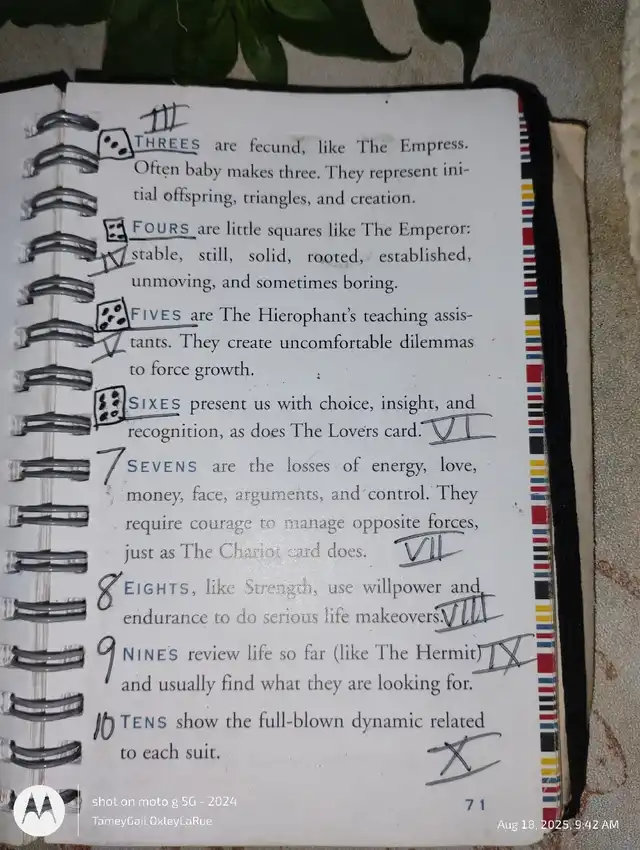 III
THREES are fecund, like The Empress.
Often baby makes three. They represent ini-
tial offspring, triangles, and creation.
FOURS are little squares like The Emperor:
IV stable, still, solid, rooted, established,
unmoving, and sometimes boring.
FIVES are The Hierophant's teaching assis-
V tants. They create uncomfortable dilemmas
to force growth.
SIXES present us with choice, insight, and
recognition, as does The Lovers card. VI
7 SEVENS are the losses of energy, love,
money, face, arguments, and control. They
require courage to manage opposite forces,
just as The Chariot card does. VII
8 EIGHTS, like Strength, use willpower and
endurance to do serious life makeovers. VIII
9 NINES review life so far (like The Hermit) IX
and usually find what they are looking for.
10 TENS show the full-blown dynamic related
to each suit.
X
71
shot on moto g 5G - 2024
TameyGail OxleyLaRue
Aug 18, 2025, 9:42 AM